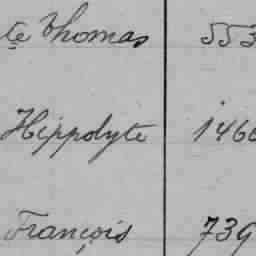 te Thomas 553
Hippolyte 1460
François 739